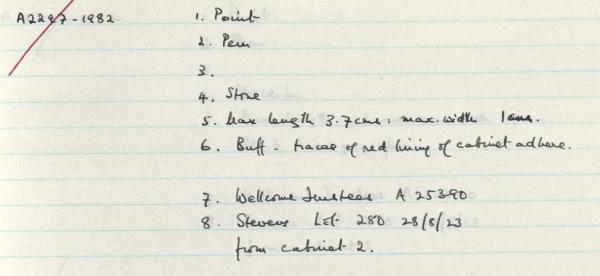 A2297-1982 1. Point
2. Peru
3.
4. Stone
5. Max length 3.7cms: max. width 1cms.
6. Buff - traces of red lining of cabinet adhere.
7. Wellcome Trustees A 25390
8. Stevens Lot 280 28/8/23
from cabinet 2.